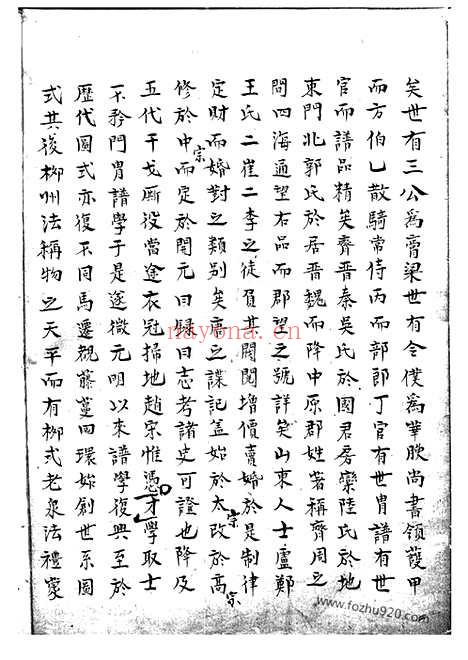 矣世有三公爲膏梁世有令僕爲華腴尚書領護甲
而方伯乙散騎常侍丙而部郎丁官有世胄譜有世
官而譜品精矣齊晉秦吳氏於國君房欒陸氏於地
東門北郭氏於居晉魏而降中原郡姓著稱齊周之
間四海通望右品而郡望之號詳矣山東人士盧鄭
王氏二崔二李之徒負其閥閱增價賣婚於是制律
定財而婚對之類別矣唐之諜記盖始於太宗改於高宗
修於中宗而定於開元曰歸曰志考諸史可證也降及
五代干戈厮役當途衣冠掃地趙宋惟憑才學取士
不矜門胄譜學于是遂微元明以來譜學復興至於
歷代圖式亦復不同馬遷親藤蔓回環始創世系圖
式其後柳州法稱物之天平而有柳式老泉法禮家
nayona.cn
www.fozhu920.com